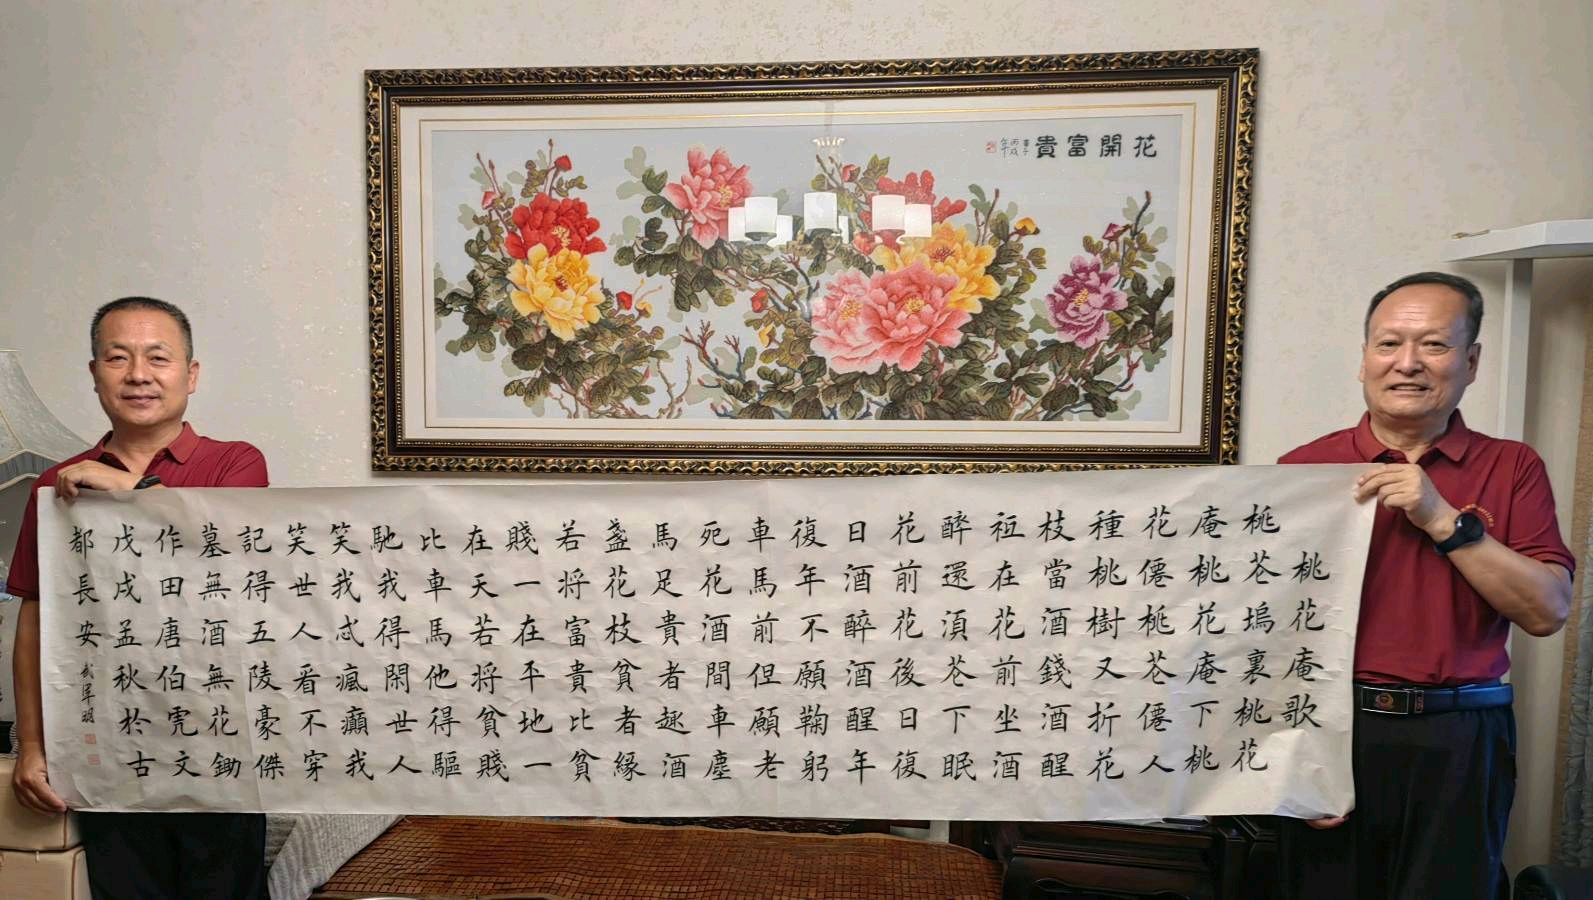 花開富貴
丙戌
年
桃花庵歌
桃花塢裏桃花
庵桃花庵下桃
花僊桃花僊人
種桃樹又折花
枝當酒錢酒醒
祗在花前坐酒
醉還須花下眠
花前花後日復
日酒醉酒醒年
復年不願鞠躬
車馬前但願老
死花酒間車塵
馬足貴者趣酒
盞花枝貧者緣
若將富貴比貧
賤一在平地一
在天若將貧賤
比車馬他得驅
馳我得閑世人
笑我忒瘋癲我
笑世人看不穿
記得五陵豪傑
墓無酒無花鋤
作田唐伯虎文
戊戌孟秋於古
都長安